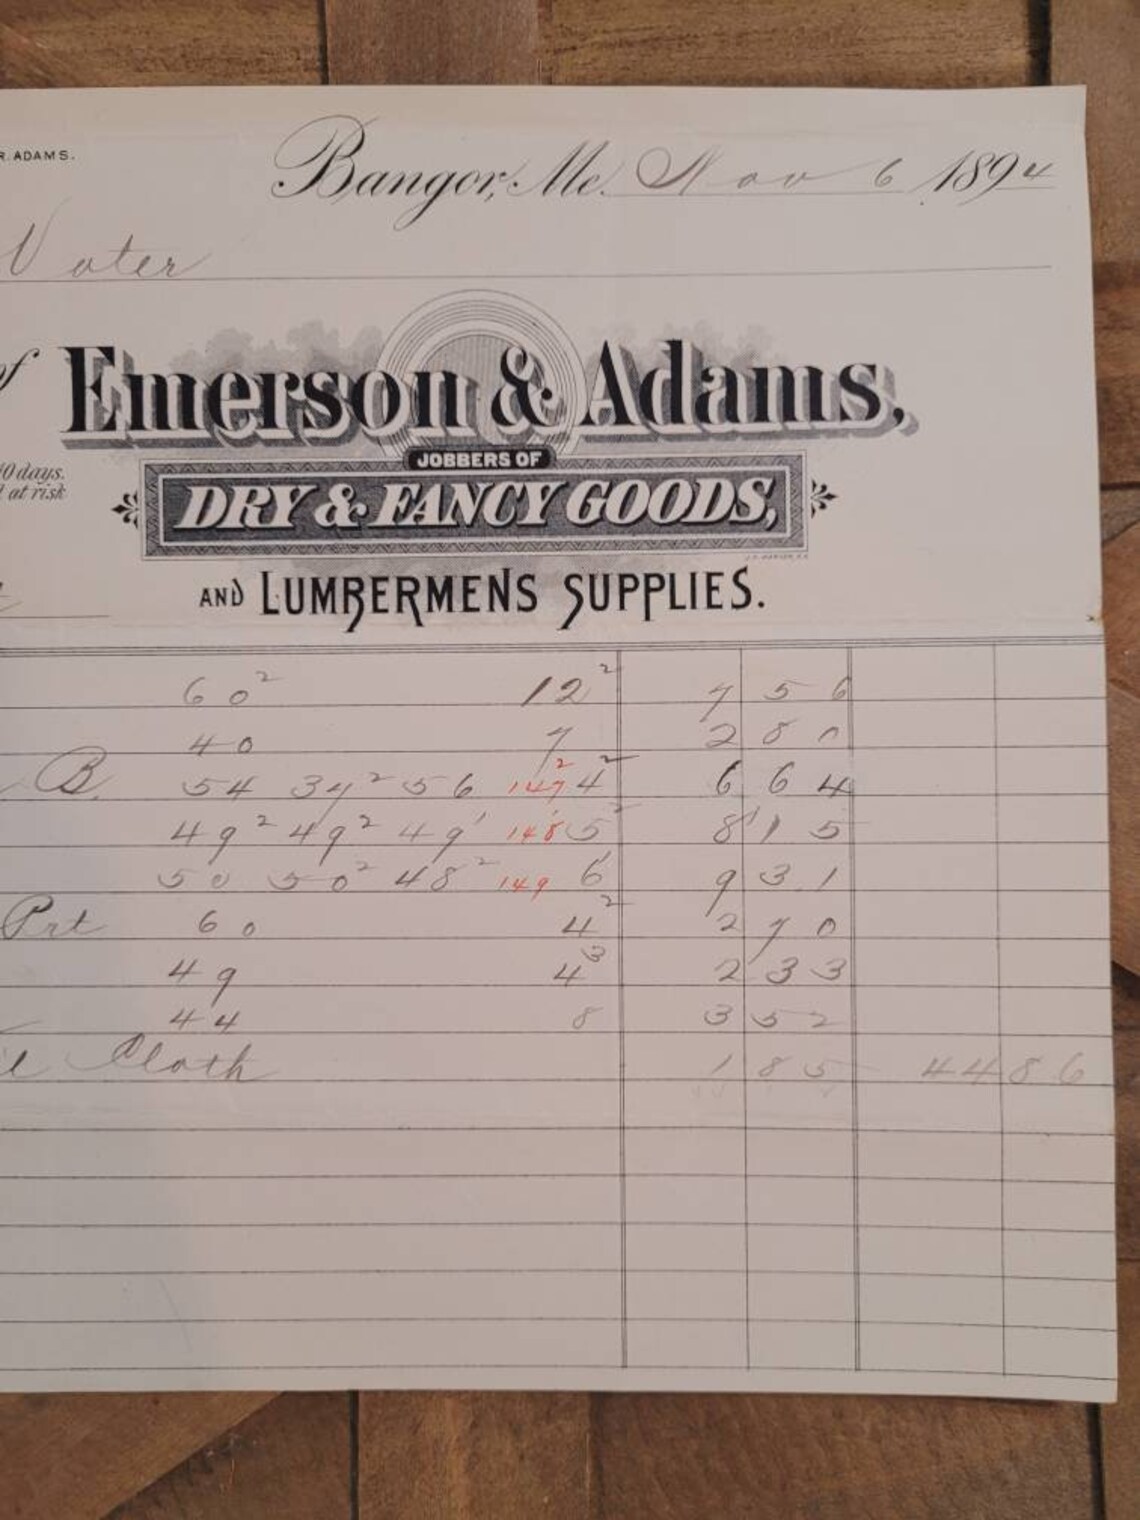 R. ADAMS.
Bangor, Me. Nov 6 1894
Vater
of Emerson & Adams,
JOBBERS OF
10 days.
at risk
DRY & FANCY GOODS,
AND LUMBERMENS SUPPLIES.
60² 12² 7 56
40 7 2 80
B. 54 37² 56 147² 4² 6 64
49² 49² 49¹ 148¹ 5² 8 15
50 50² 48² 149 6¹ 9 31
Prt 60 4² 2 70
49 4³ 2 33
44 8 3 52
Cloth 1 85 44 86